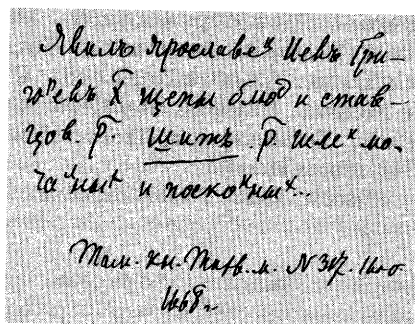 Явилъ ярославец Иевъ Гри-
горьевъ х҃ щепы блюд и став-
цов. р҃. шитъ. р҃. шлек мо-
чалных и посконных...
Там. кн. Тихв. м. N
1668 г.